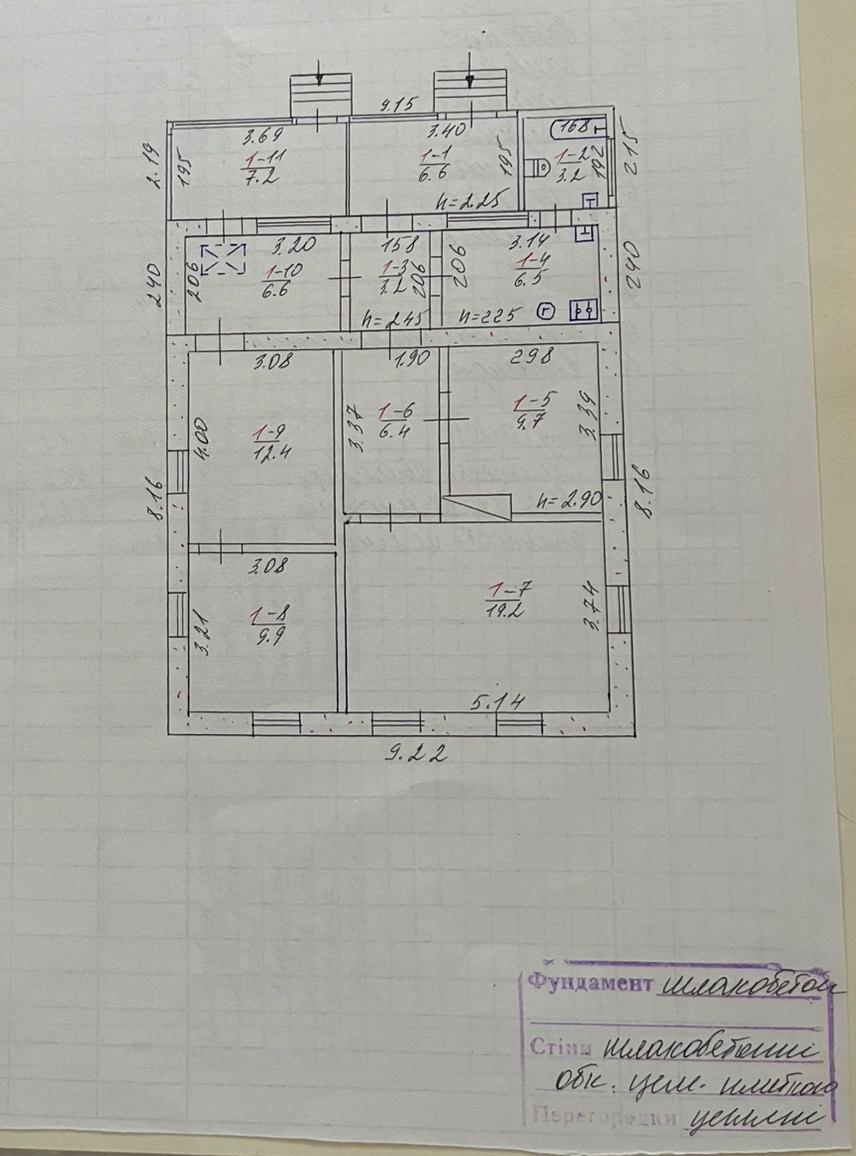 9.15
3.69
3.40
168
2.19
195
1-11
7.2
1-1
6.6
195
1-2
3.2
192
215
h=2.25
3.20
158
3.14
240
206
1-10
6.6
1-3
3.2
206
206
1-4
6.5
240
h=245
h=225
Г
3.08
1.90
298
4.00
1-9
12.4
3.37
1-6
6.4
1-5
9.7
3.39
8.16
8.16
h=2.90
3.08
3.21
1-8
9.9
1-7
19.2
3.74
5.14
9.22
Фундамент шлакобетон
Стіни шлакобетонні
обк. цем. плиткою
Перегородки цегляні